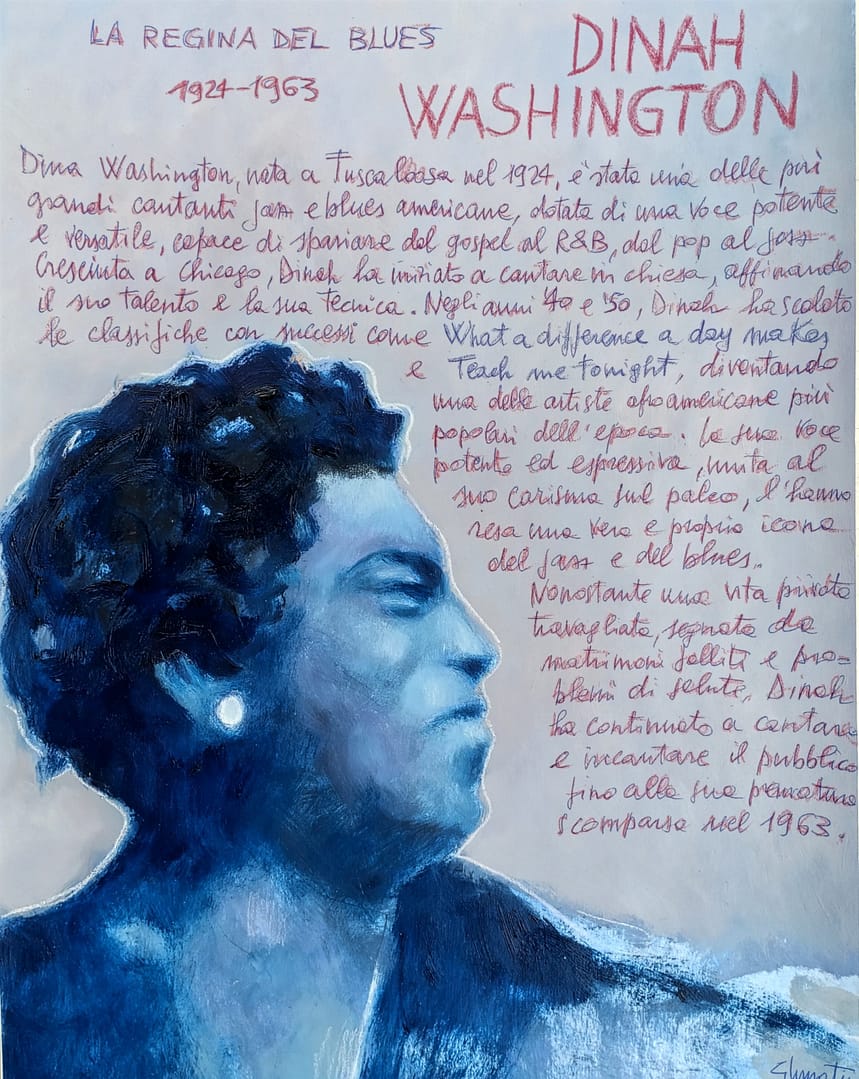 LA REGINA DEL BLUES
1924-1963
DINAH
WASHINGTON
Dina Washington, nata a Tuscaloosa nel 1924, è stata una delle più
grandi cantanti jazz e blues americane, dotata di una voce potente
e versatile, capace di spaziare dal gospel al R&B, dal pop al jazz.
Cresciuta a Chicago, Dinah ha iniziato a cantare in chiesa, affinando
il suo talento e la sua tecnica. Negli anni '40 e '50, Dinah ha scalato
le classifiche con successi come What a difference a day makes
e Teach me tonight, diventando
una delle artiste afroamericane più
popolari dell'epoca. La sua voce
potente ed espressiva, unita al
suo carisma sul palco, l'hanno
resa una vera e propria icona
del jazz e del blues.
Nonostante una vita privata
travagliata, segnata da
matrimoni falliti e pro=
blemi di salute, Dinah
ha continuato a cantare
e incantare il pubblico
fino alla sua prematura
scomparsa nel 1963.